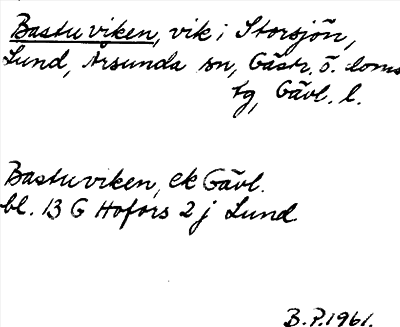 Bastuviken, vik i Storsjön,
Lund, Årsunda sn, Gästr. ö. doms
tg, Gävl. l.
Bastuviken, ek Gävl.
bl. 13 G Hofors 2 j Lund
B.P. 1961.